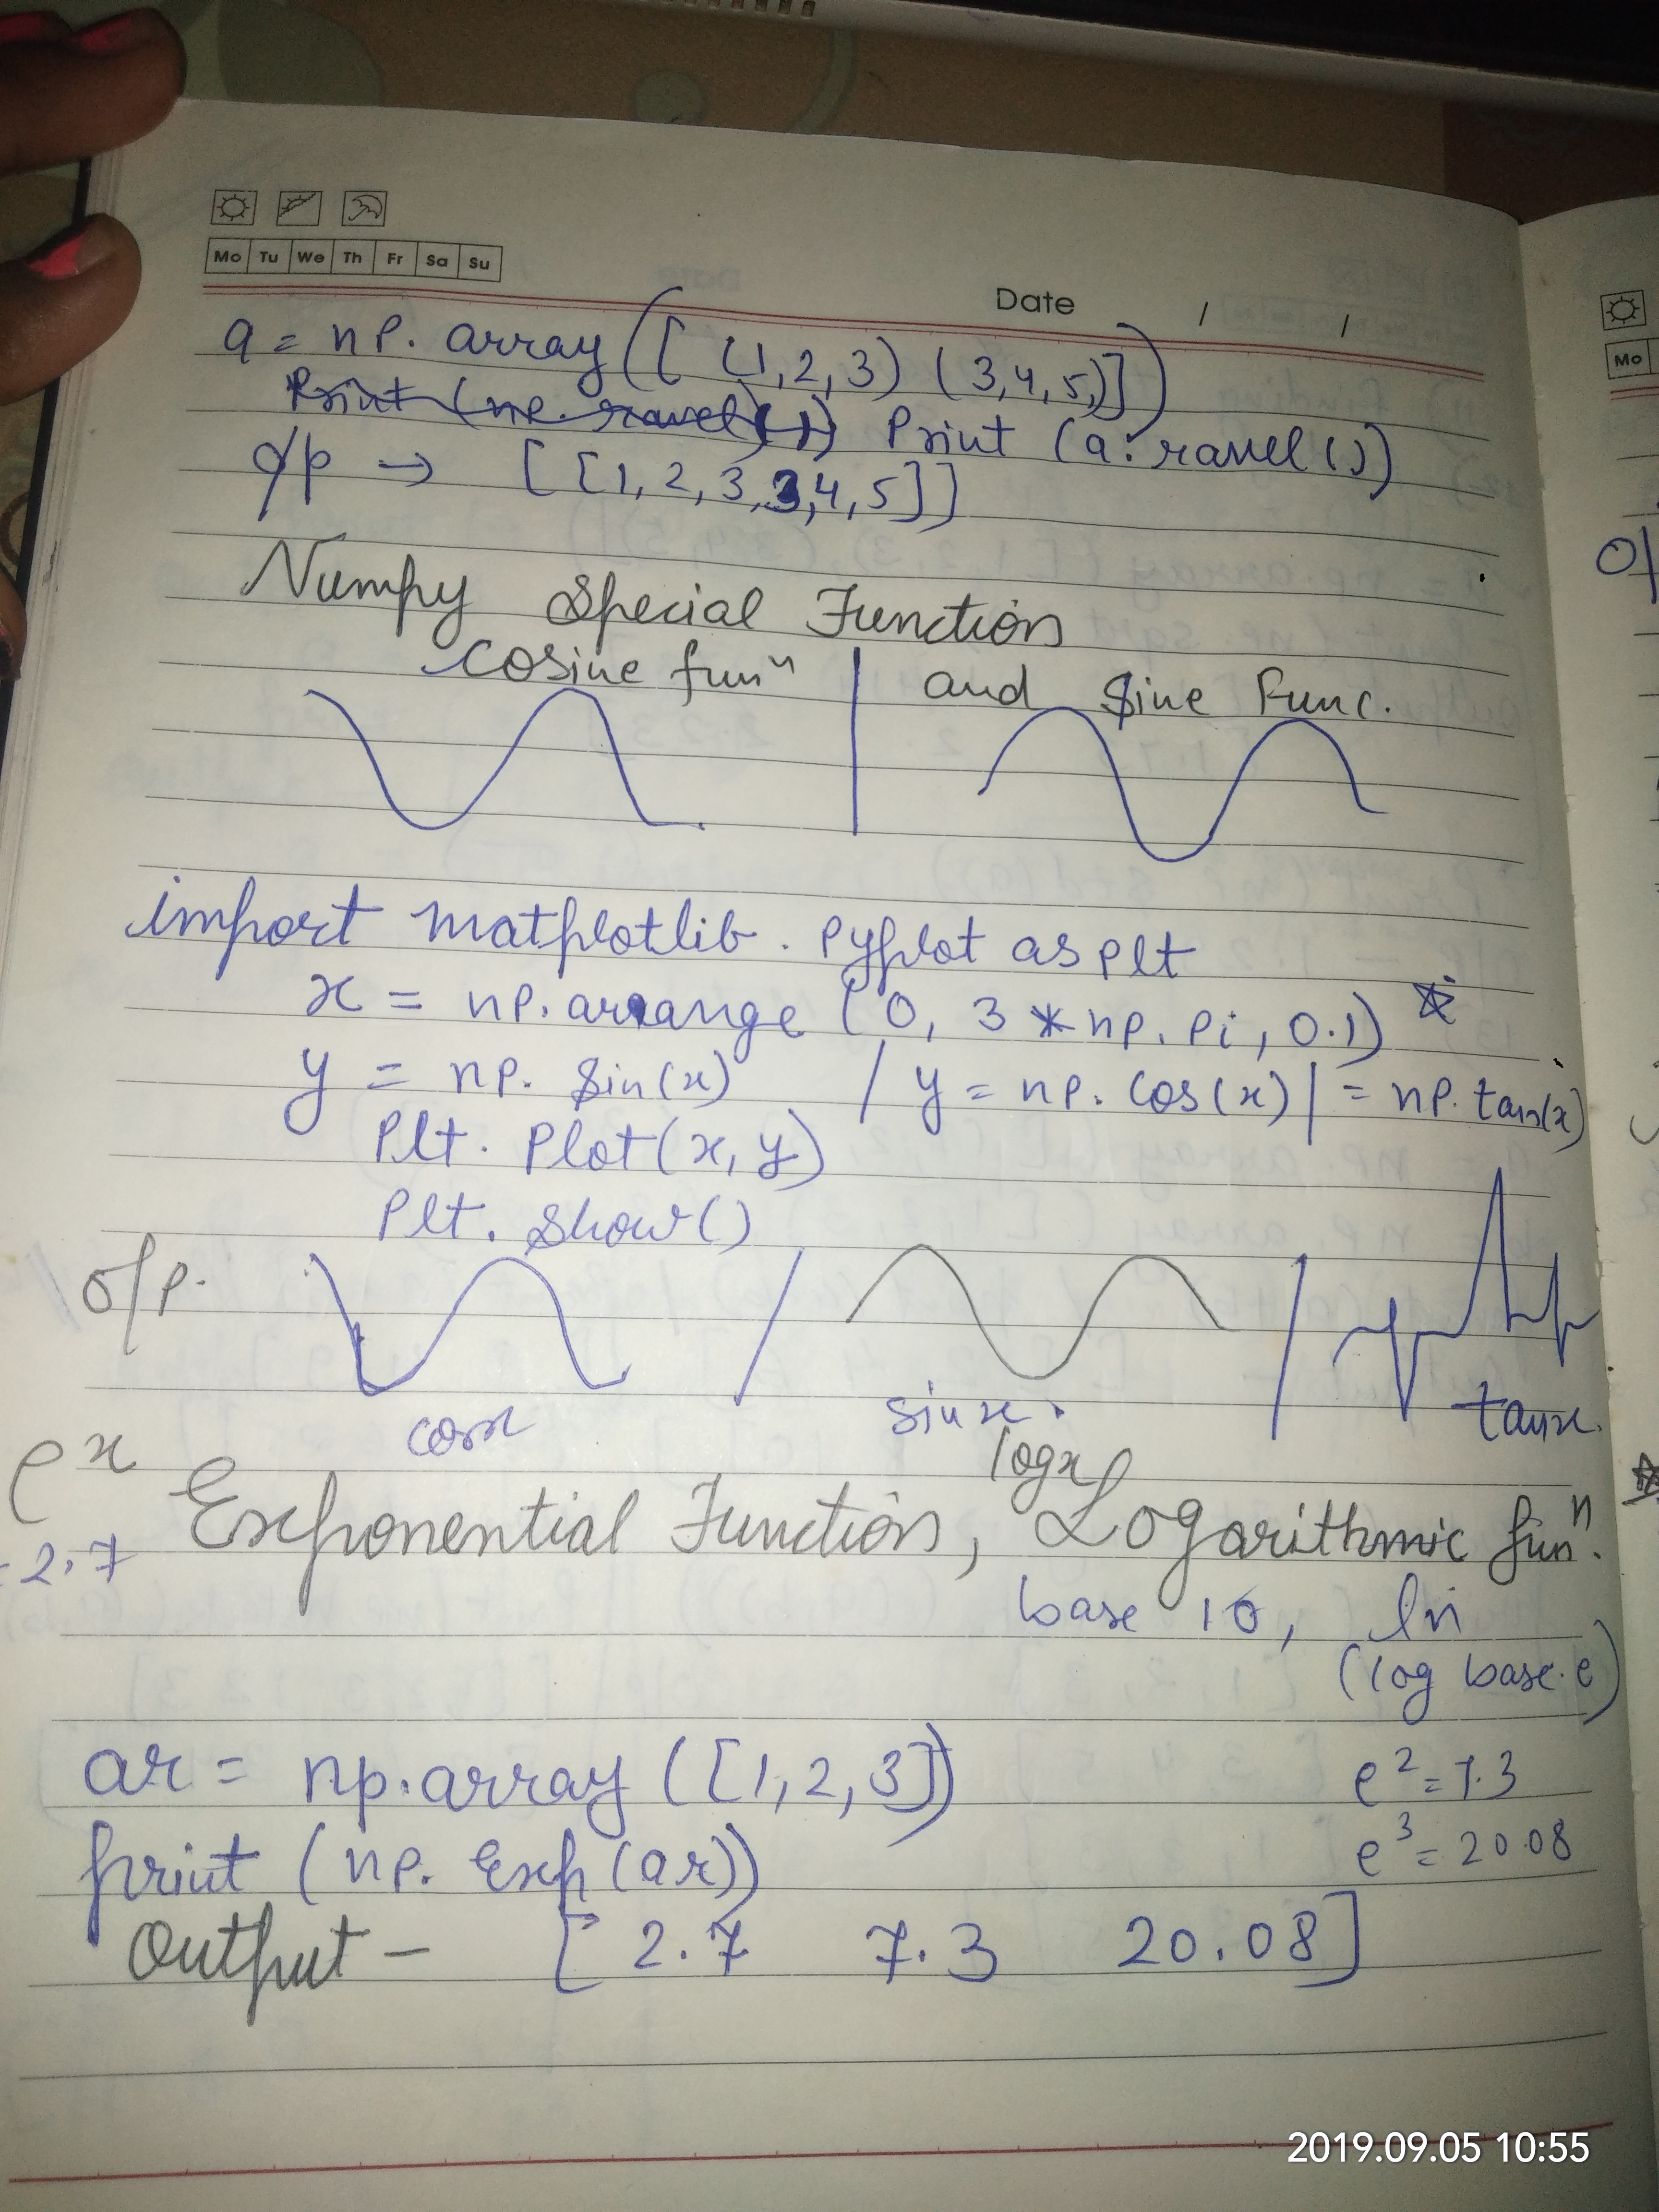 Mo Tu We Th Fr Sa Su
Date / /
a = np. array([ (1,2,3) (3,4,5)])
Print (np. ravel)(1)) Print (a. ravel())
o/p → [[1, 2, 3, 3, 4, 5]]
Numpy Special Function
Cosine funⁿ | and Sine Func.
import matplotlib. Pyplot as plt
x = np. arrange (0, 3 * np. pi, 0.1) ☆
y = np. Sin(x) / y = np. Cos(x) | = np. tan(x)
Plt. Plot(x, y)
Plt. Show()
o/p.
cosx sinx. tanx.
eˣ logx
= 2.7 Exponential Function, Logarithmic funⁿ.
base 10, ln
(log base.e)
ar = np.array ([1, 2, 3]) e² = 7.3
print (np. Exp (ar)) e³ = 20.08
Output – [ 2.7 7.3 20.08]
Mo
O/
2019.09.05 10:55